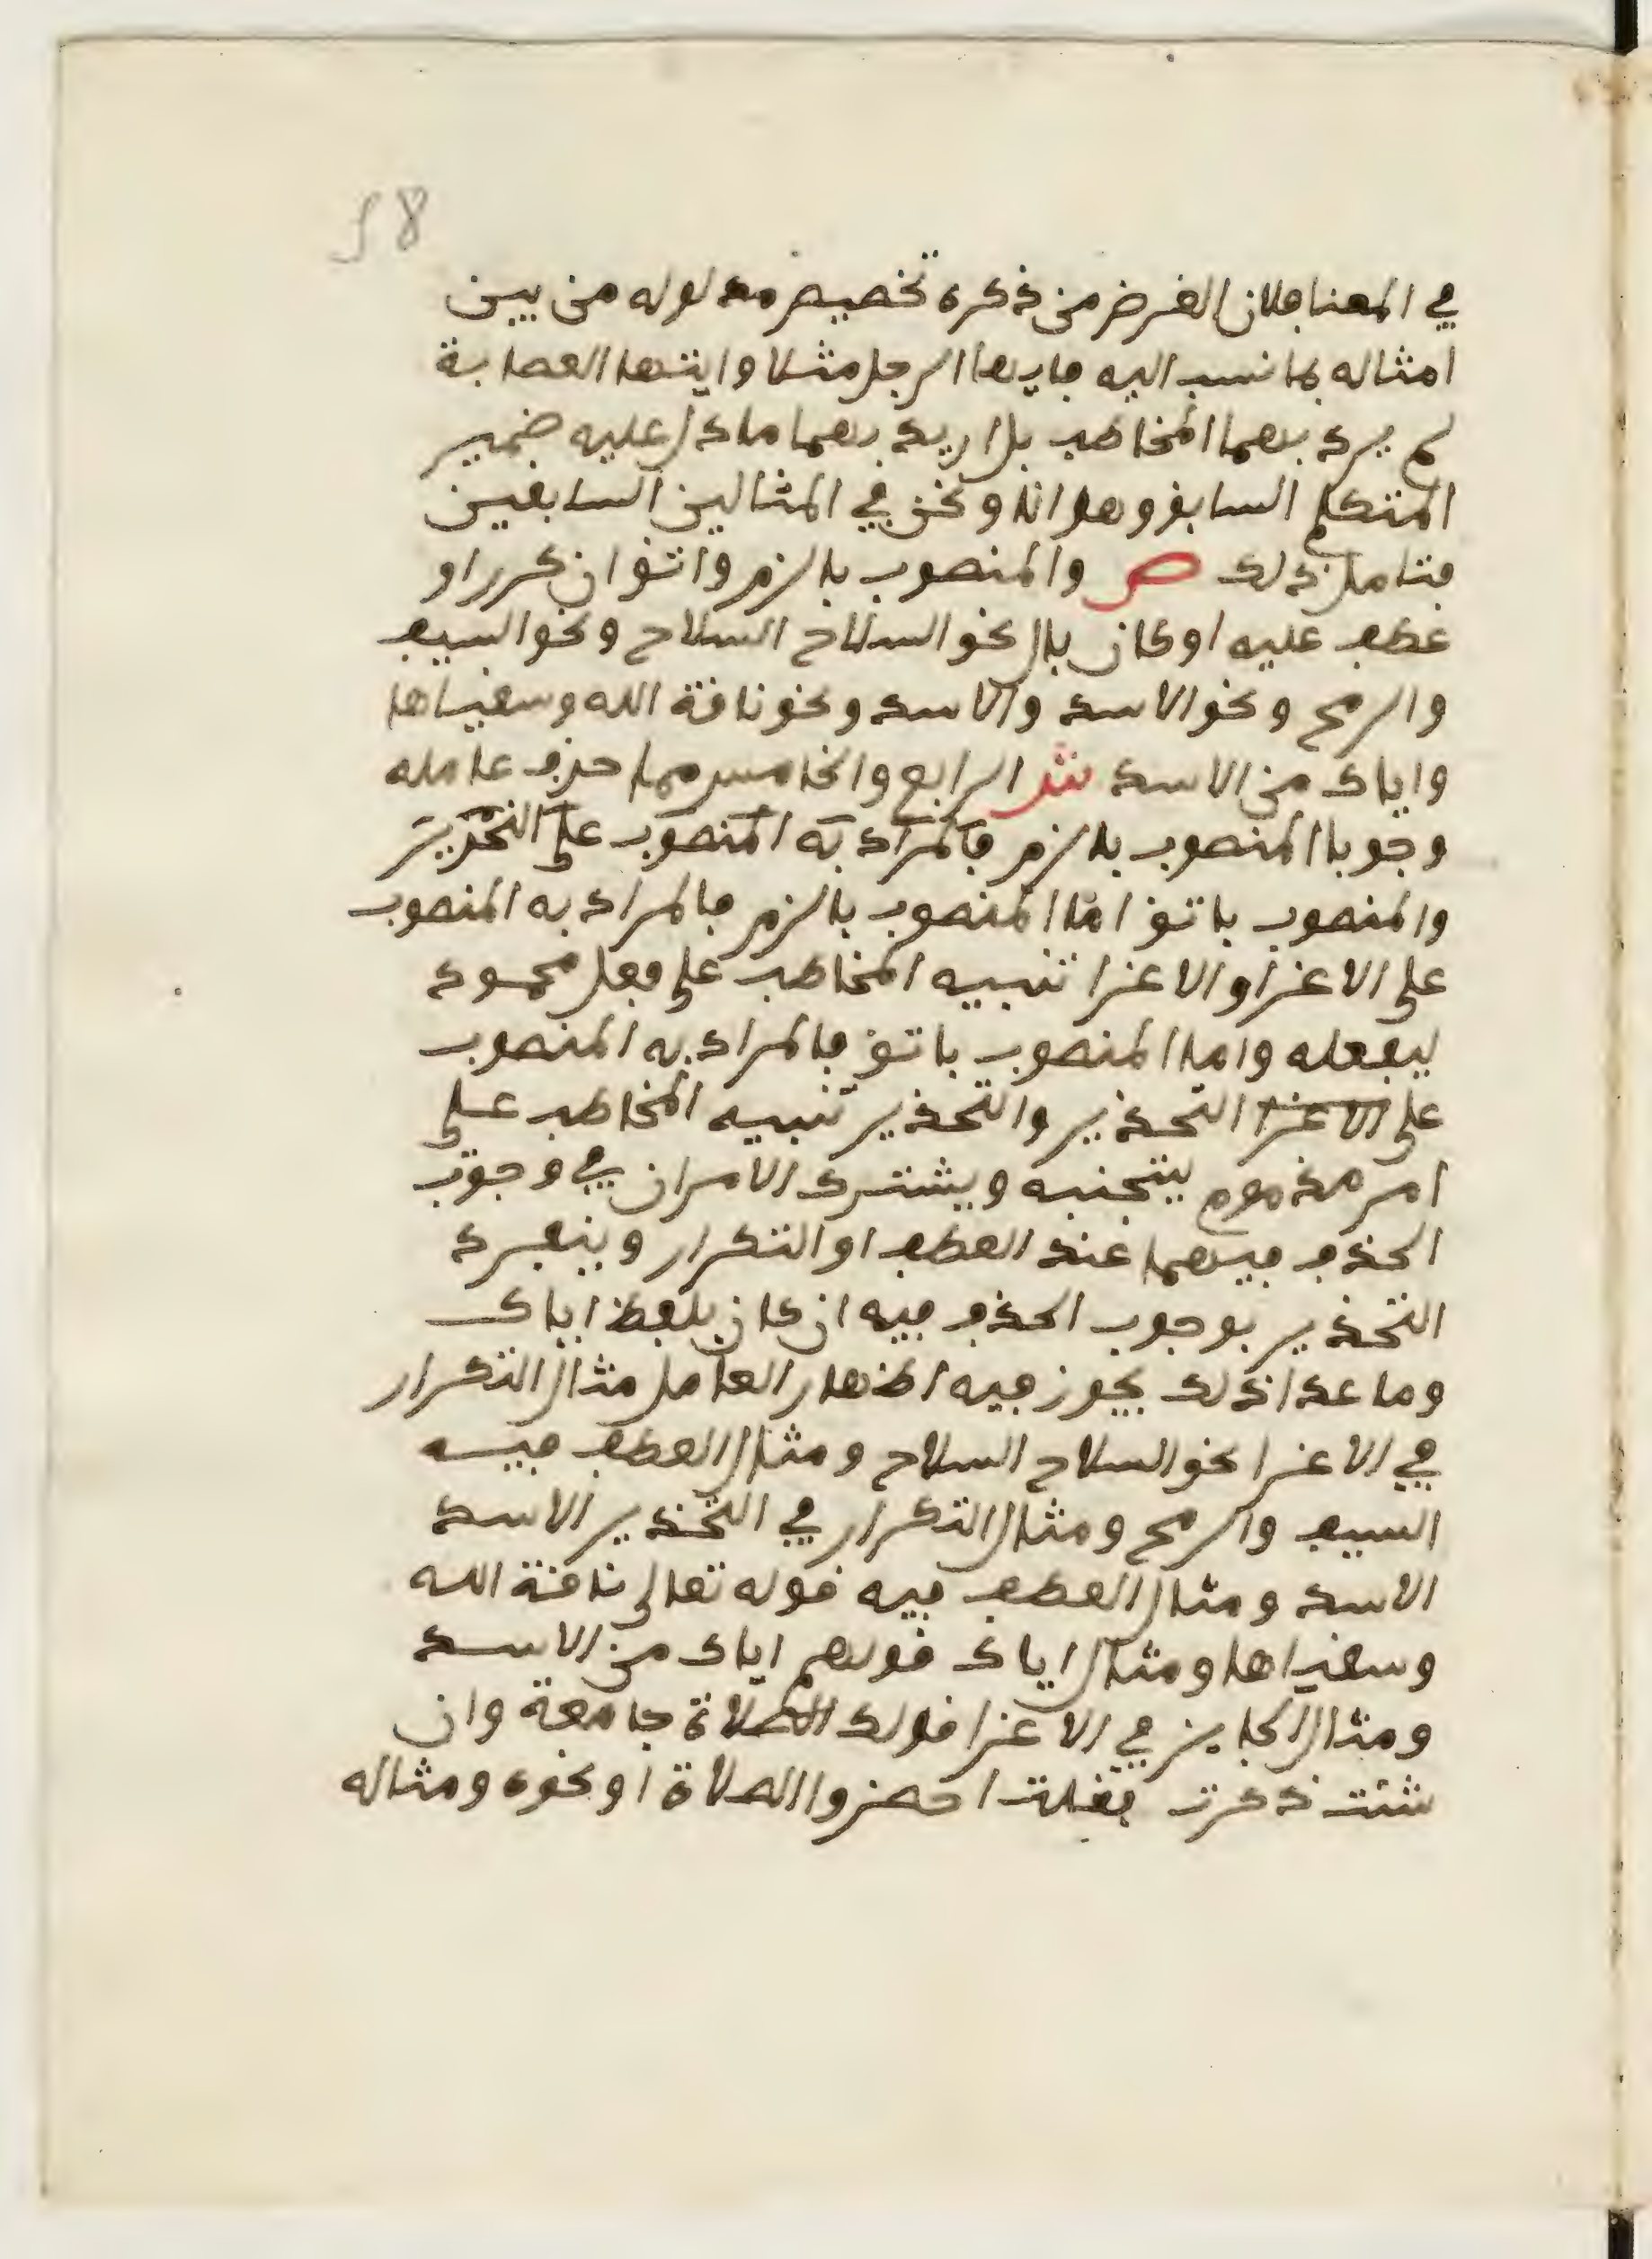 58
في المعنا فلان الغرض من ذكره تخصيص مدلوله من بين
امثاله بما نسب اليه فايها الرجل مثلا وايتها العصابة
لم يرد بهما المخاطب بل اريد بهما ما دل عليه ضمير
المتكلم السابق وهو انا ونحن في المثالين السابقين
فتامل ذلك ص والمنصوب بالزم واتق ان كرر او
عطف عليه او كان بال نحو السلاح السلاح ونحو السيف
والرمح ونحو الاسد والاسد ونحو ناقة الله وسقياها
واياك من الاسد ش الرابع والخامس مما حذف عامله
وجوبا المنصوب بالزم فالمراد به المنصوب على التحذير
والمنصوب باتق اما المنصوب بالزم فالمراد به المنصوب
على الاغرا والاغرا تنبيه المخاطب على فعل محمود
ليفعله واما المنصوب باتق فالمراد به المنصوب
على الاغرا التحذير والتحذير تنبيه المخاطب على
امر مذموم يتجنبه ويشترك الامران في وجوب
الحذف فيهما عند العطف او التكرار وينفرد
التحذير بوجوب الحذف فيه ان كان بلفظ اياك
وما عدا ذلك يجوز فيه اظهار العامل مثال التكرار
في الاغرا نحو السلاح السلاح ومثال العطف فيه
السيف والرمح ومثال التكرار في التحذير الاسد
الاسد ومثال العطف فيه قوله تعالى ناقة الله
وسقياها ومثال اياك قولهم اياك من الاسد
ومثال الجايز في الاغرا قولك الصلاة جامعة وان
شئت ذكرت فقلت احضروا الصلاة او نحوه ومثاله